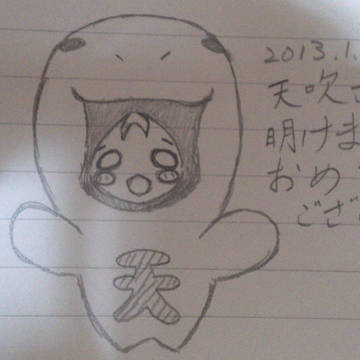 2013.1.
天吹さ
明けま
おめ
ござ
天